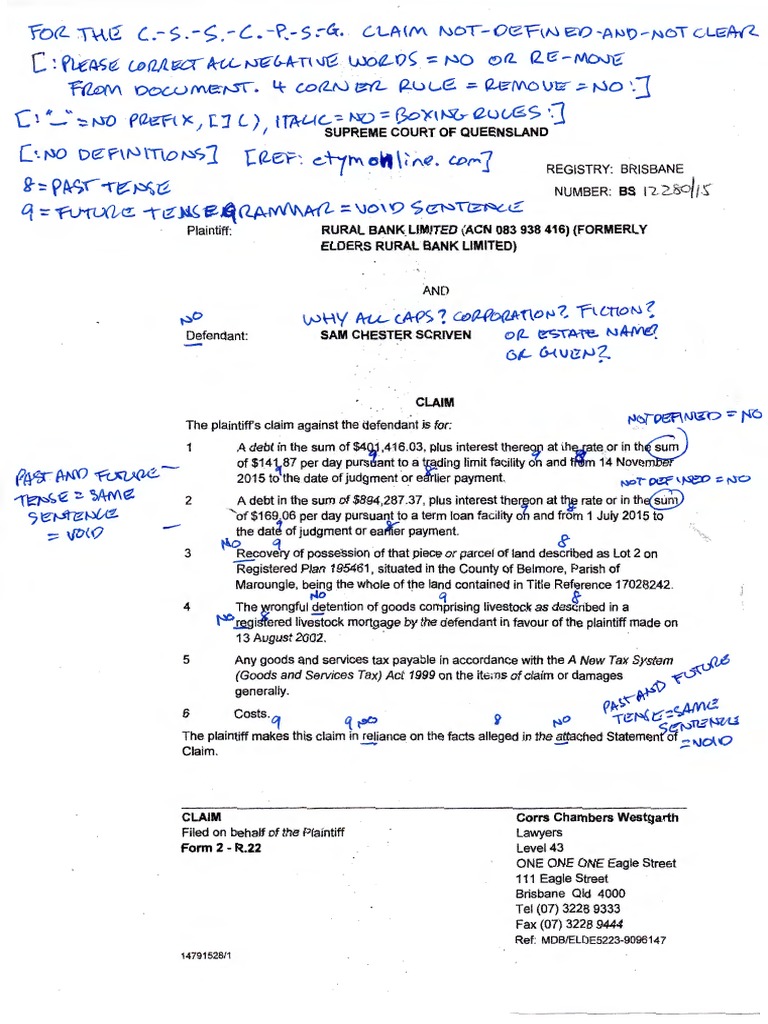 FOR THE C.-S.-S.-C.-P.-S.-G. CLAIM NOT-DEFINED-AND-NOT CLEAR
[:PLEASE CORRECT ALL NEGATIVE WORDS = NO OR RE-MOVE
FROM DOCUMENT. 4 CORNER RULE = REMOVE = NO:]
[:"_"=NO PREFIX, [ ] ( ), ITALIC=NO=BOXING RULES:]
SUPREME COURT OF QUEENSLAND
[:NO DEFINITIONS] [REF: etymonline.com]
REGISTRY: BRISBANE
8=PAST TENSE
NUMBER: BS 12280/15
9=FUTURE TENSE GRAMMAR=VOID SENTENCE
Plaintiff: RURAL BANK LIMITED (ACN 083 938 416) (FORMERLY
ELDERS RURAL BANK LIMITED)
AND
NO
WHY ALL CAPS? CORPORATION? FICTION?
Defendant: SAM CHESTER SCRIVEN
OR ESTATE NAME?
OR GIVEN?
CLAIM
The plaintiff's claim against the defendant is for:
NOT DEFINED = NO
1 A debt in the sum of $401,416.03, plus interest thereon at the rate or in the sum
9 8
of $141.87 per day pursuant to a trading limit facility on and from 14 November
9 8
2015 to the date of judgment or earlier payment.
PAST AND FUTURE
TENSE = SAME
SENTENCE
= VOID
NOT DEFINED = NO
2 A debt in the sum of $894,287.37, plus interest thereon at the rate or in the sum
9 8
of $169.06 per day pursuant to a term loan facility on and from 1 July 2015 to
9 8
the date of judgment or earlier payment.
NO 9 8
3 Recovery of possession of that piece or parcel of land described as Lot 2 on
Registered Plan 195461, situated in the County of Belmore, Parish of
Maroungle, being the whole of the land contained in Title Reference 17028242.
NO 9 8
4 The wrongful detention of goods comprising livestock as described in a
NO 8
registered livestock mortgage by the defendant in favour of the plaintiff made on
13 August 2002.
5 Any goods and services tax payable in accordance with the A New Tax System
(Goods and Services Tax) Act 1999 on the items of claim or damages
generally.
PAST AND FUTURE
TENSE=SAME
SENTENCE
=VOID
6 Costs.
9 9 NO 8 NO
The plaintiff makes this claim in reliance on the facts alleged in the attached Statement of
Claim.
CLAIM
Filed on behalf of the Plaintiff
Form 2 - R.22
Corrs Chambers Westgarth
Lawyers
Level 43
ONE ONE ONE Eagle Street
111 Eagle Street
Brisbane Qld 4000
Tel (07) 3228 9333
Fax (07) 3228 9444
Ref: MDB/ELDE5223-9096147
14791528/1